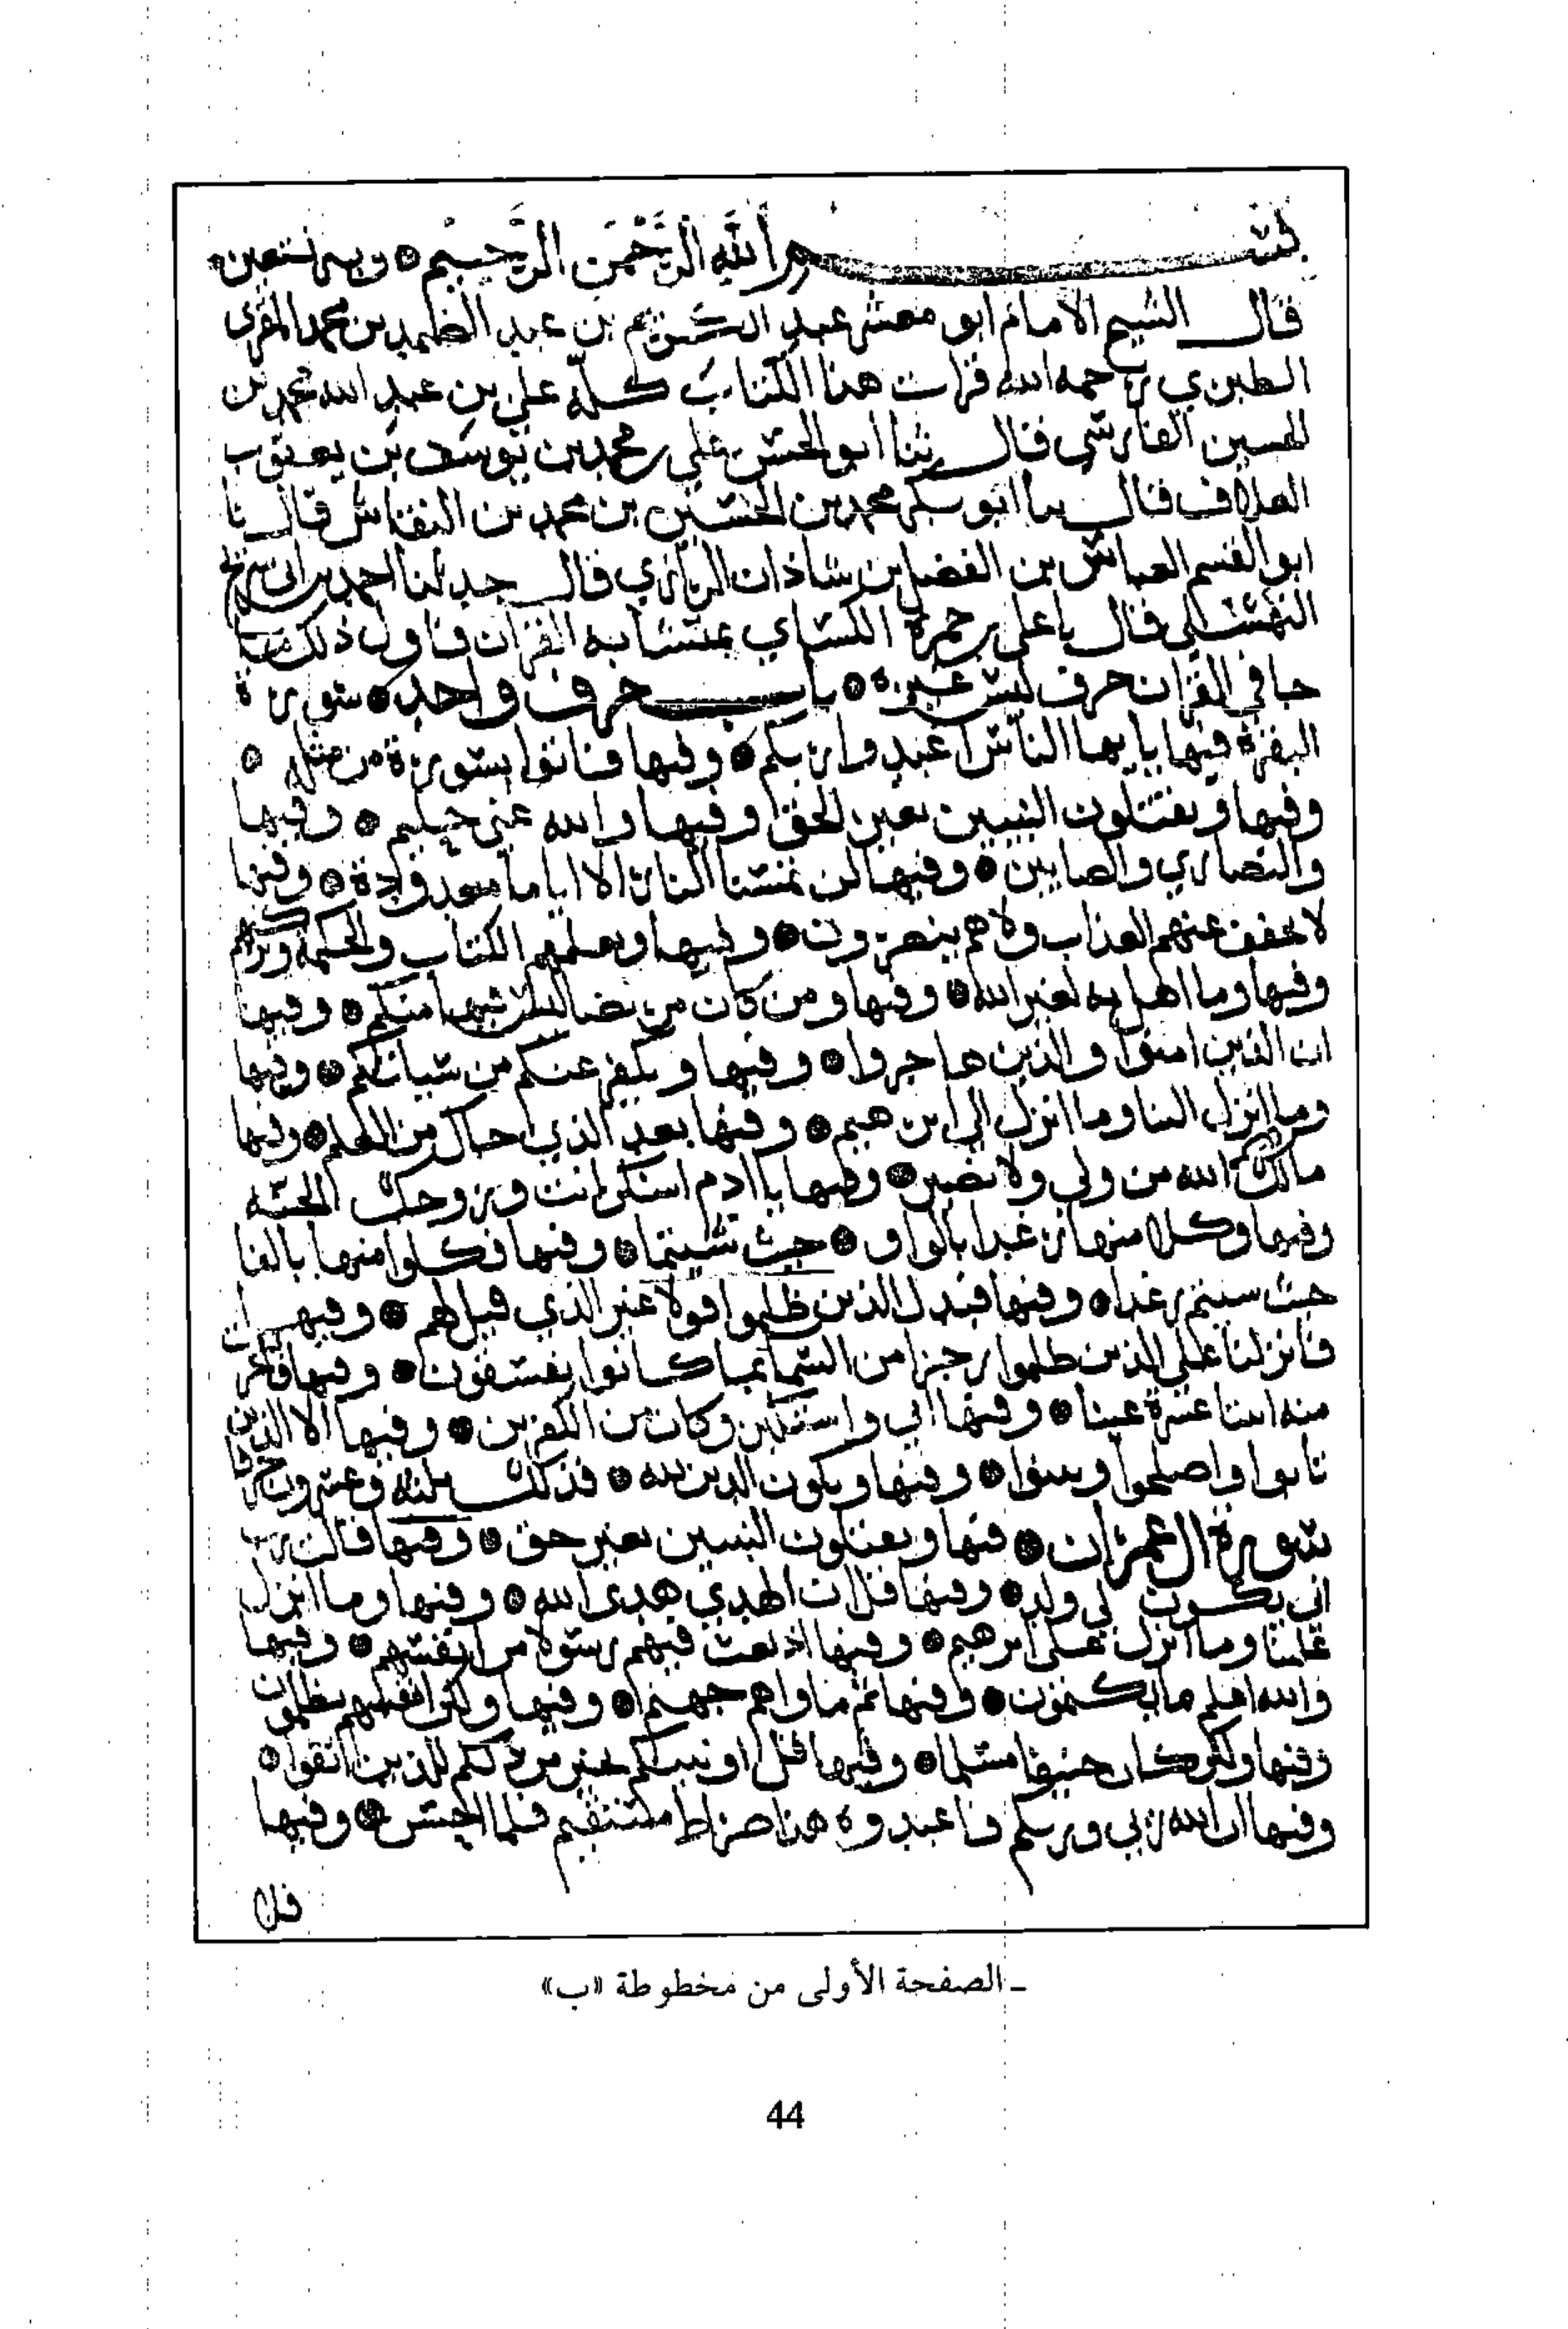 بسم الله الرحمن الرحيم ۞ وبه نستعين
قال الشيخ الامام ابو معشر عبد الكريم بن عبد الصمد بن محمد المقرى
الطبري رحمه الله قرات هذا الكتاب كله على بن عبد الله محمد بن
الحسين الفارسي قال ثنا ابو الحسن علي بن محمد بن يوسف بن يعقوب
العلاف قال ثنا ابو بكر محمد بن الحسين بن محمد بن النقاش قال نا
ابو القسم العباس بن الفضل بن شاذان الرازي قال حدثنا احمد بن ابى سريج
النهشلي قال نا على بن حمزة الكساي بمتشابه القران فاول ذلك
جا في القران حرف ليس غيره ۞ باب حرف واحد ۞ سورة
البقرة فيها يايها الناس اعبدوا ربكم ۞ وفيها فاتوا بسورة من مثله ۞
وفيها ويقتلون النبيين بغير الحق وفيها والله غني حليم ۞ وفيها
والنصارى والصابين ۞ وفيها لن تمسنا النار الا اياما معدودة ۞ وفيها
لا يخفف عنهم العذاب ولا هم ينصرون ۞ وفيها ويعلمهم الكتاب والحكمة ويزكيهم
وفيها وما اهل به لغير الله ۞ وفيها ومن كان من منكم ۞ وفيها
ان الذين امنوا والذين هاجروا ۞ وفيها ويكفر عنكم من سياتكم ۞ وفيها
وما انزل الينا وما انزل الى ابرهيم ۞ وفيها بعد الذي جاك من العلم ۞ وفيها
مالك من الله من ولي ولا نصير ۞ وفيها يا ادم اسكن انت وزوجك الجنة
وفيها وكلا منها رغدا بالواو ۞ حيث شيتما ۞ وفيها فكلوا منها بالفا
حيث شيتم رغدا ۞ وفيها فبدل الذين ظلموا قولا غير الذي قيل لهم ۞ وفيها
فانزلنا على الذين ظلموا رجزا من السما بما كانوا يفسقون ۞ وفيها فانفجرت
منه اثنتا عشرة عينا ۞ وفيها ابى واستكبر وكان من الكفرين ۞ وفيها الا الذين
تابوا واصلحوا وبينوا ۞ وفيها ويكون الدين لله ۞ فذلك ثلثه وعشرون حرفا
سورة ال عمران ۞ فيها ويقتلون النبيين بغير حق ۞ وفيها قالت رب
انى يكون لي ولد ۞ وفيها قل ان الهدي هدى الله ۞ وفيها وما انزل
علينا وما انزل على ابرهيم ۞ وفيها اذ بعث فيهم رسولا من انفسهم ۞ وفيها
والله اعلم بما يكتمون ۞ وفيها ثم ماواهم جهنم ۞ وفيها ولكن انفسهم يظلمون
وفيها ولكن كان حنيفا مسلما ۞ وفيها قل اونبيكم بخير من ذلكم للذين اتقوا ۞
وفيها ان الله ربي وربكم فاعبدوه هذا صراط مستقيم فلما احس ۞ وفيها
قل
ـ الصفحة الأولى من مخطوطة «ب»
44